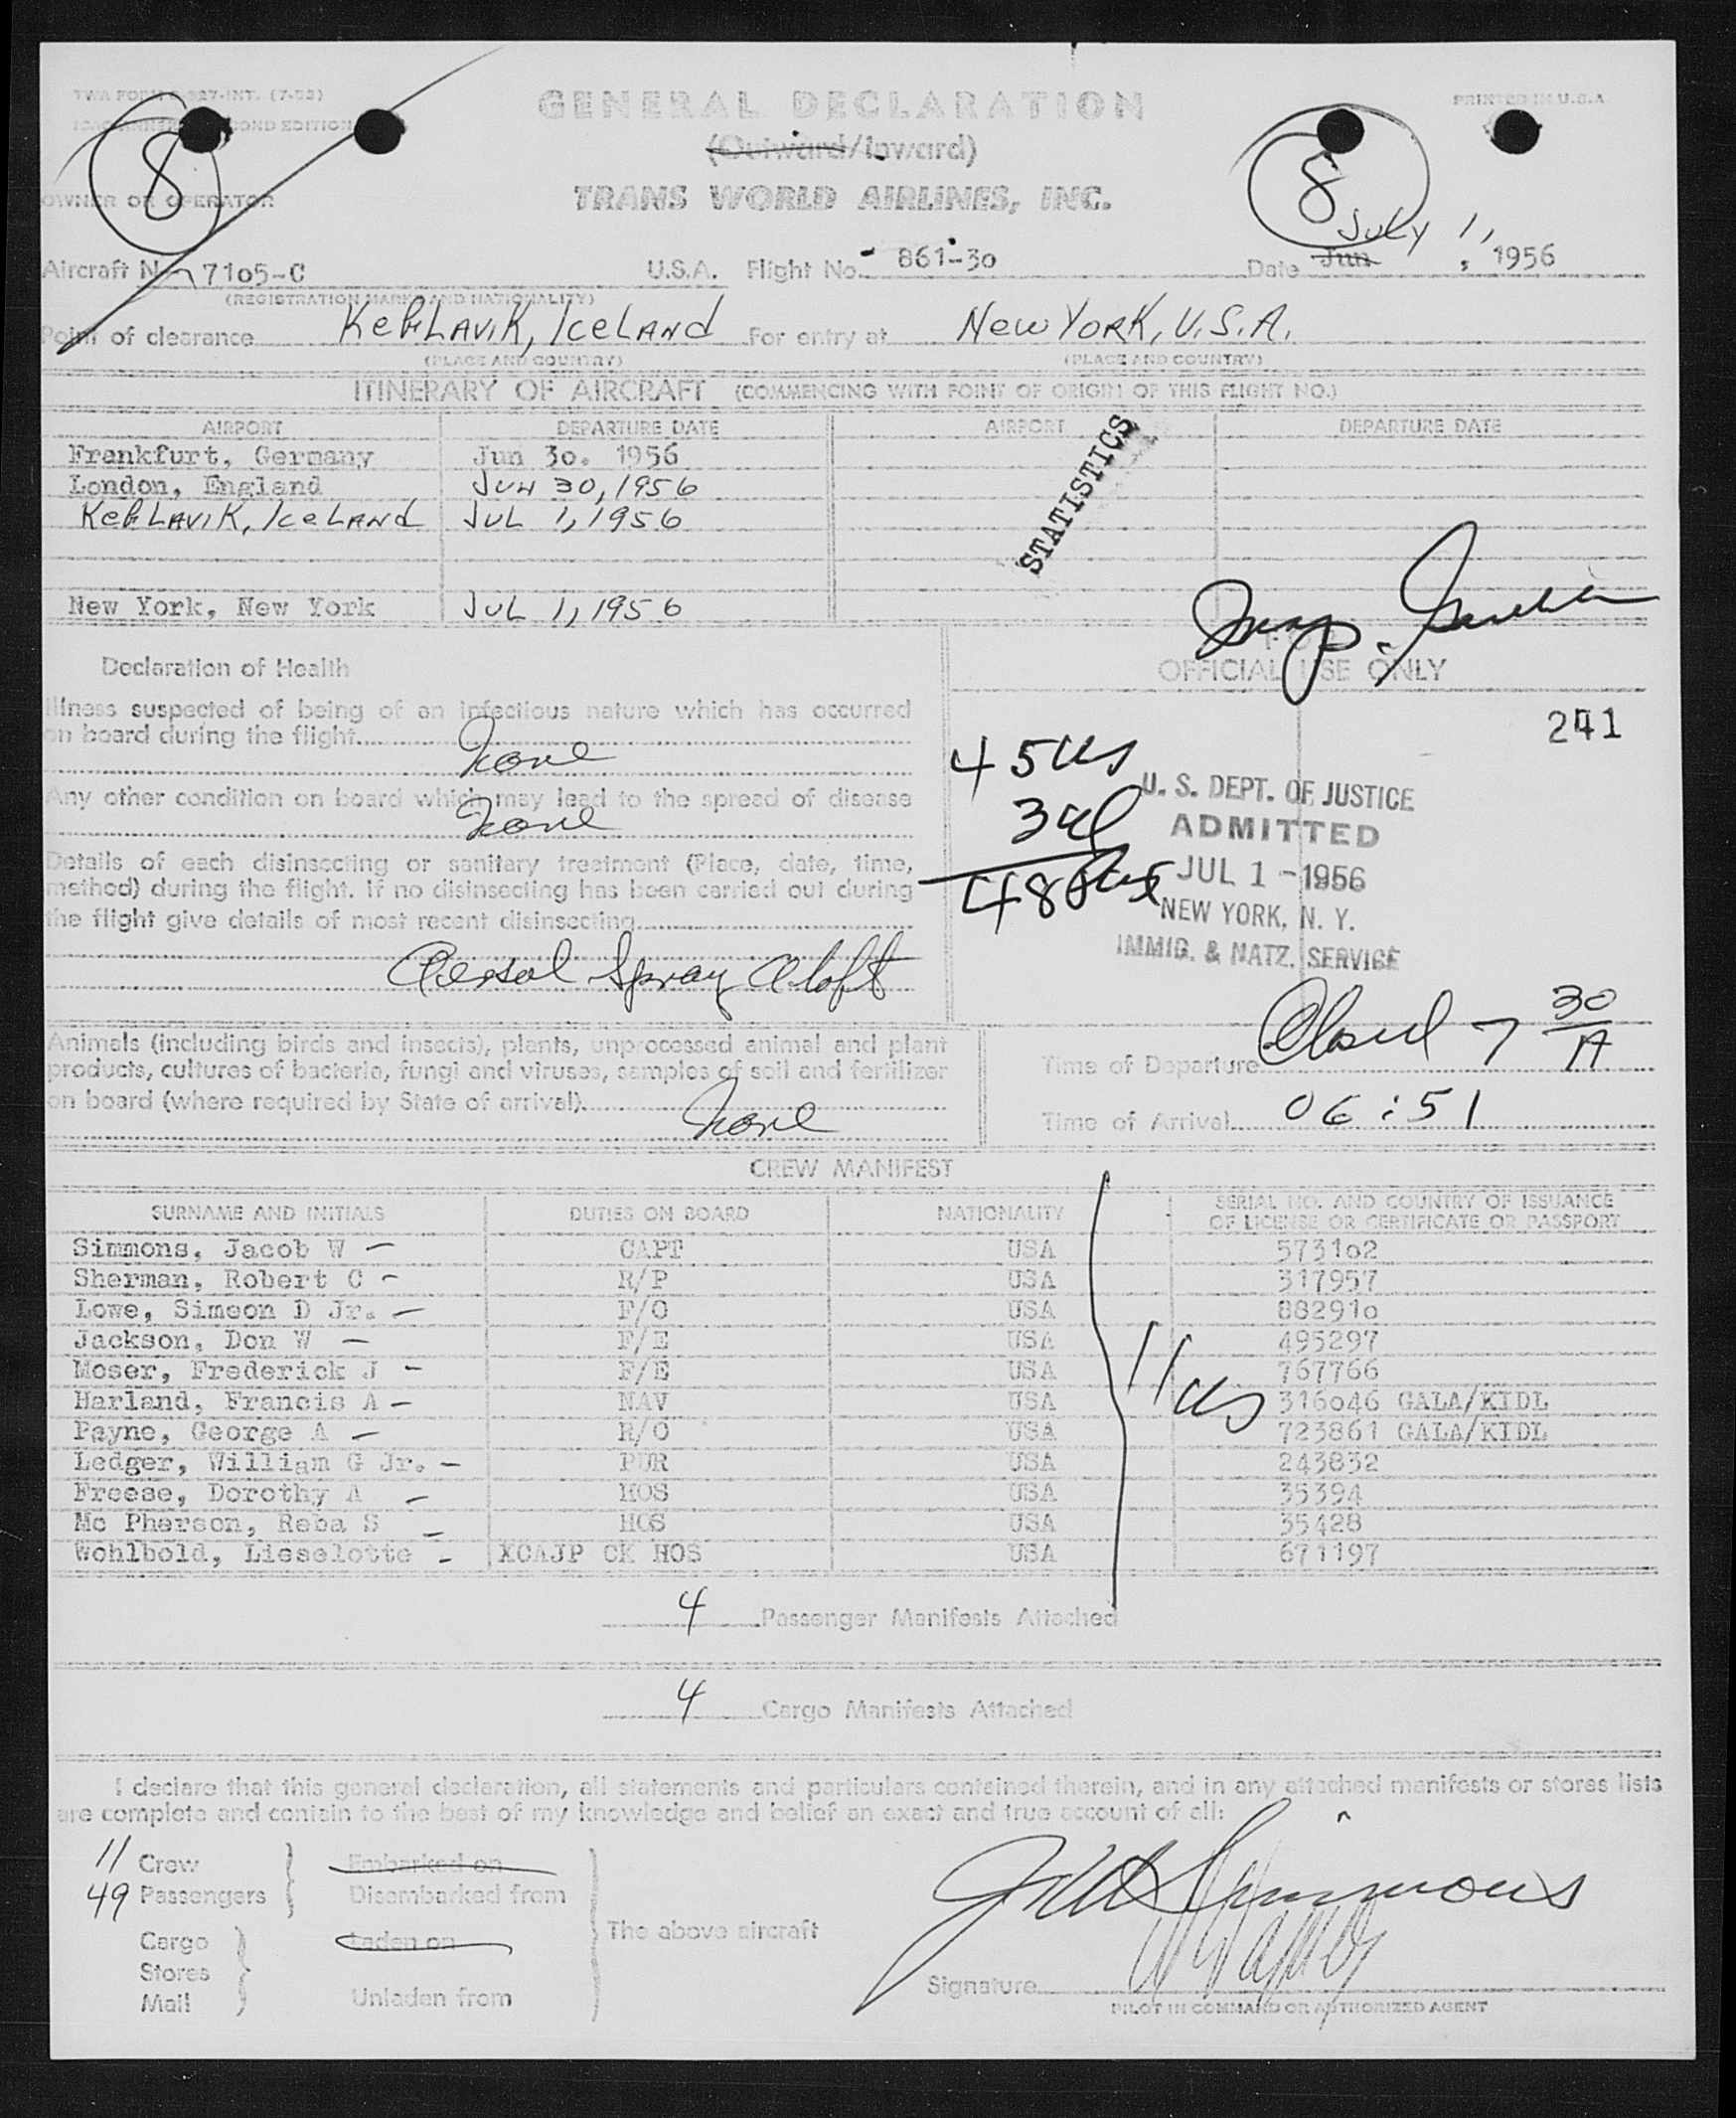 TWA FORM -327-INT. (7-53)
GENERAL DECLARATION
PRINTED IN U.S.A.
OND EDITION
(Outward/Inward)
8
8
OWNER OR OPERATOR
TRANS WORLD AIRLINES, INC.
July 1,
Aircraft N 7105-C U.S.A. Flight No. - 861-30 Date Jun , 1956
(REGISTRATION MARKS AND NATIONALITY)
Point of clearance Keflavik, Iceland For entry at New York, U.S.A.
(PLACE AND COUNTRY) (PLACE AND COUNTRY)
ITINERARY OF AIRCRAFT (COMMENCING WITH POINT OF ORIGIN OF THIS FLIGHT NO.)
AIRPORT DEPARTURE DATE AIRPORT DEPARTURE DATE
Frankfurt, Germany Jun 30. 1956
London, England Jun 30, 1956
Keflavik, Iceland Jul 1, 1956
STATISTICS
New York, New York Jul 1, 1956
Declaration of Health
FOR
OFFICIAL USE ONLY
241
Illness suspected of being of an infectious nature which has occurred
on board during the flight
None
Any other condition on board which may lead to the spread of disease
None
Details of each disinsecting or sanitary treatment (Place, date, time,
method) during the flight. If no disinsecting has been carried out during
the flight give details of most recent disinsecting
Aerosol Spray Aloft
45 us
3 al
48
U. S. DEPT. OF JUSTICE
ADMITTED
JUL 1 - 1956
NEW YORK, N. Y.
IMMIG. & NATZ. SERVICE
Animals (including birds and insects), plants, unprocessed animal and plant
products, cultures of bacteria, fungi and viruses, samples of soil and fertilizer
on board (where required by State of arrival)
None
Time of Departure Closed 7 30/A
Time of Arrival 06:51
CREW MANIFEST
SURNAME AND INITIALS DUTIES ON BOARD NATIONALITY SERIAL NO. AND COUNTRY OF ISSUANCE
OF LICENSE OR CERTIFICATE OR PASSPORT
Simmons, Jacob W - CAPT USA 573102
Sherman, Robert C - R/P USA 317957
Lowe, Simeon D Jr. - F/O USA 882910
Jackson, Don W - F/E USA 495297
Moser, Frederick J - F/E USA 767766
Harland, Francis A - NAV USA 316046 GALA/KIDL
Payne, George A - R/O USA 723861 GALA/KIDL
Ledger, William G Jr. - PUR USA 243832
Freese, Dorothy A - HOS USA 35394
Mc Pherson, Reba S - HOS USA 35428
Wohlbold, Lieselotte - XCAJP CK HOS USA 671197
11 us
4 Passenger Manifests Attached
4 Cargo Manifests Attached
I declare that this general declaration, all statements and particulars contained therein, and in any attached manifests or stores lists
are complete and contain to the best of my knowledge and belief an exact and true account of all:
11 Crew Embarked on
49 Passengers Disembarked from
The above aircraft
Cargo Laden on
Stores
Mail Unladen from
JW Simmons
Signature
PILOT IN COMMAND OR AUTHORIZED AGENT